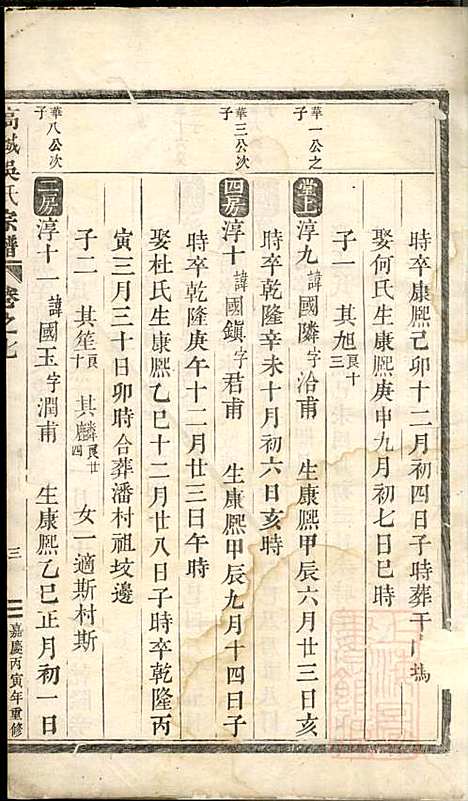 時卒康熈己卯十二月初四日子時葬干
娶何氏生康熈庚申九月初七日巳時
子一 其旭 艮十三
華一公之子
堂上 淳九 諱國隣字洽甫 生康熈甲辰六月廿三日亥
時卒乾隆辛未十月初六日亥時
華三公次子
四房 淳十 諱國鎭字君甫 生康熈甲辰九月十四日子
時卒乾隆庚午十二月廿三日午時
娶杜氏生康熈乙巳十二月廿八日子時卒乾隆丙
寅三月三十日卯時合葬潘村祖坟邊
子二 其笙 艮十 其麟 艮廿四 女一適斯村斯
華八公次子
二房 淳十一 諱國玉字潤甫 生康熈乙巳正月初一日
高城吳氏宗譜 卷之七
三
嘉慶丙寅年重修